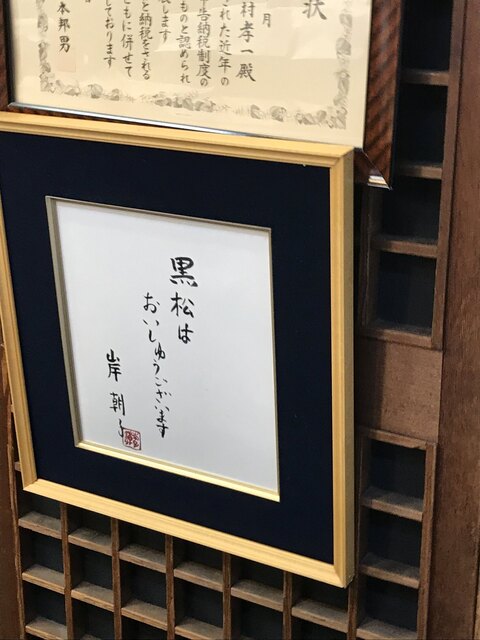 状
月
村孝一殿
された近年の
申告納税制度の
ものと認められ
と納税をされる
ともに併せて
しております
本邦男
黒松は
おいしゅうございます
岸朝子